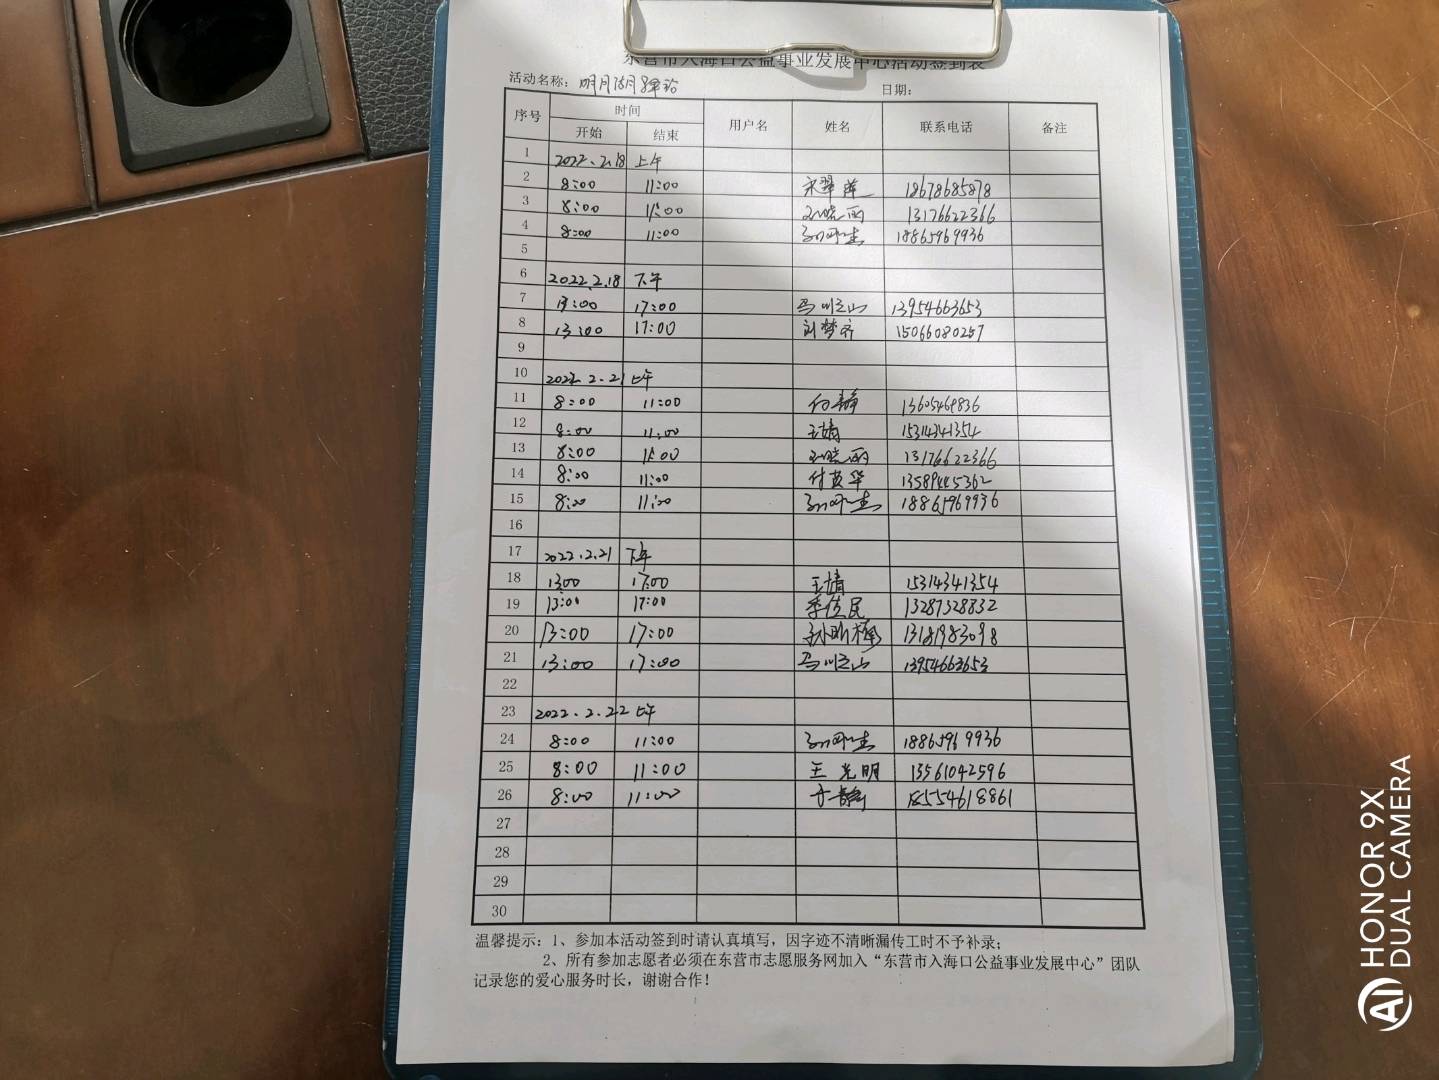 东营市入海口公益事业发展中心活动签到表
活动名称: 明月 日期:
序号 时间 用户名 姓名 联系电话 备注
开始 结束
1 2022.2.18 上午
2 8:00 11:00 宋翠萍 18678685878
3 8:00 11:00 晓丽 13176622366
4 8:00 11:00 18865969936
5
6 2022.2.18 下午
7 13:00 17:00 马 山 13954663653
8 13:00 17:00 刘梦齐 15066080257
9
10 2022.2.21 上午
11 8:00 11:00 付静 13605469836
12 8:00 11:00 王婧 15314341354
13 8:00 11:00 晓丽 13176622366
14 8:00 11:00 付英华 13589445362
15 8:00 11:00 18865969936
16
17 2022.2.21 下午
18 13:00 17:00 王婧 15314341354
19 13:00 17:00 季佳民 13287328832
20 13:00 17:00 孙 13181983098
21 13:00 17:00 马 山 13954663653
22
23 2022.2.22 上午
24 8:00 11:00 18865969936
25 8:00 11:00 王光明 13561042596
26 8:00 11:00 18554618861
27
28
29
30
温馨提示: 1、参加本活动签到时请认真填写，因字迹不清晰漏传工时不予补录;
2、所有参加志愿者必须在东营市志愿服务网加入“东营市入海口公益事业发展中心”团队
记录您的爱心服务时长，谢谢合作!
HONOR 9X
DUAL CAMERA
AI